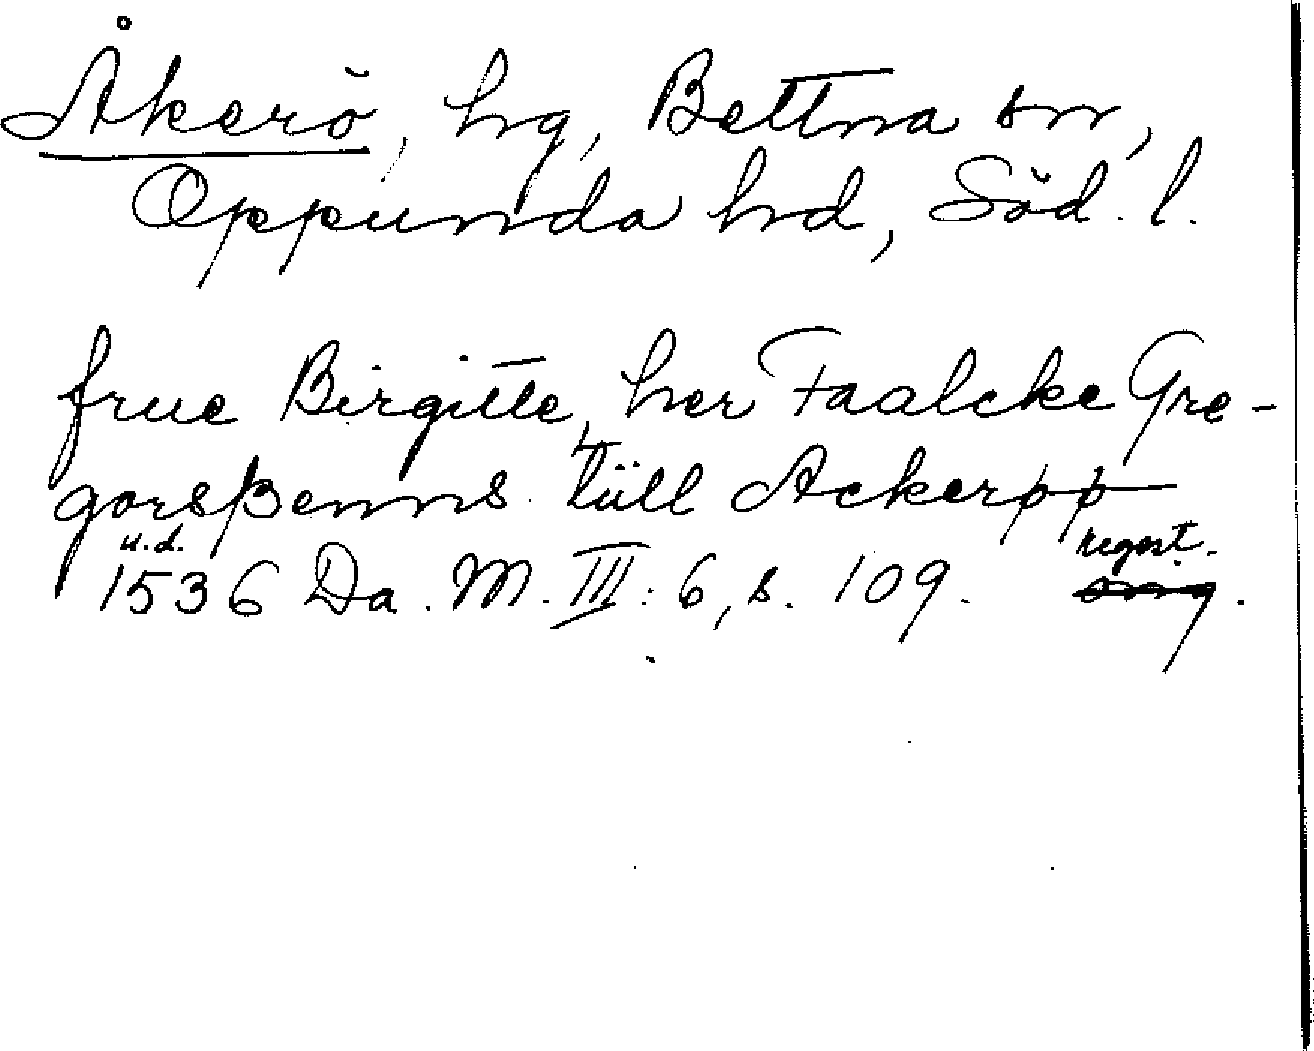 Åkerö, hg, Bettna sn,
Oppunda hd, Söd. l.
frue Birgitte, her Faalcke Gre-
gorsßenns tüll Ackerøø
u.d. regest.
1536 Da. M. III: 6, s. 109.